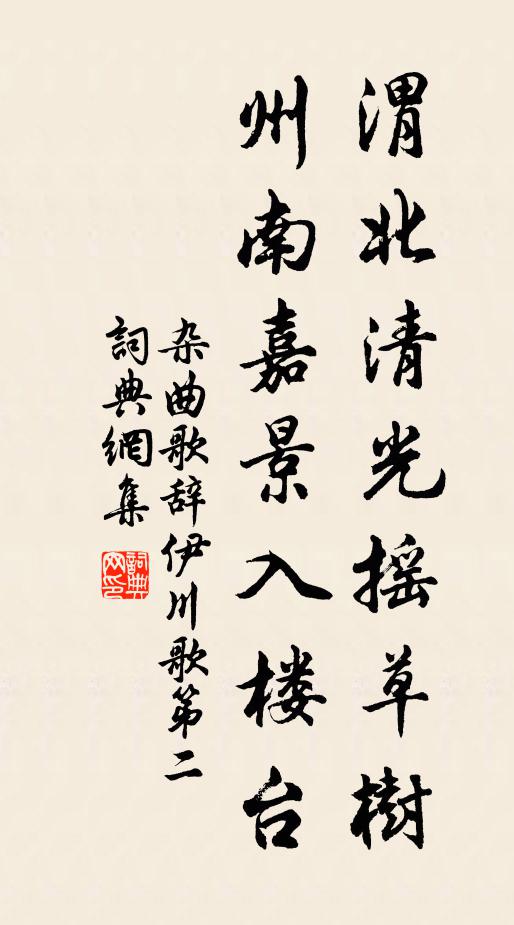 渭北清光摇草樹
州南嘉景入楼台
杂曲歌辞伊川歌第二
詞典網集
詞典网印